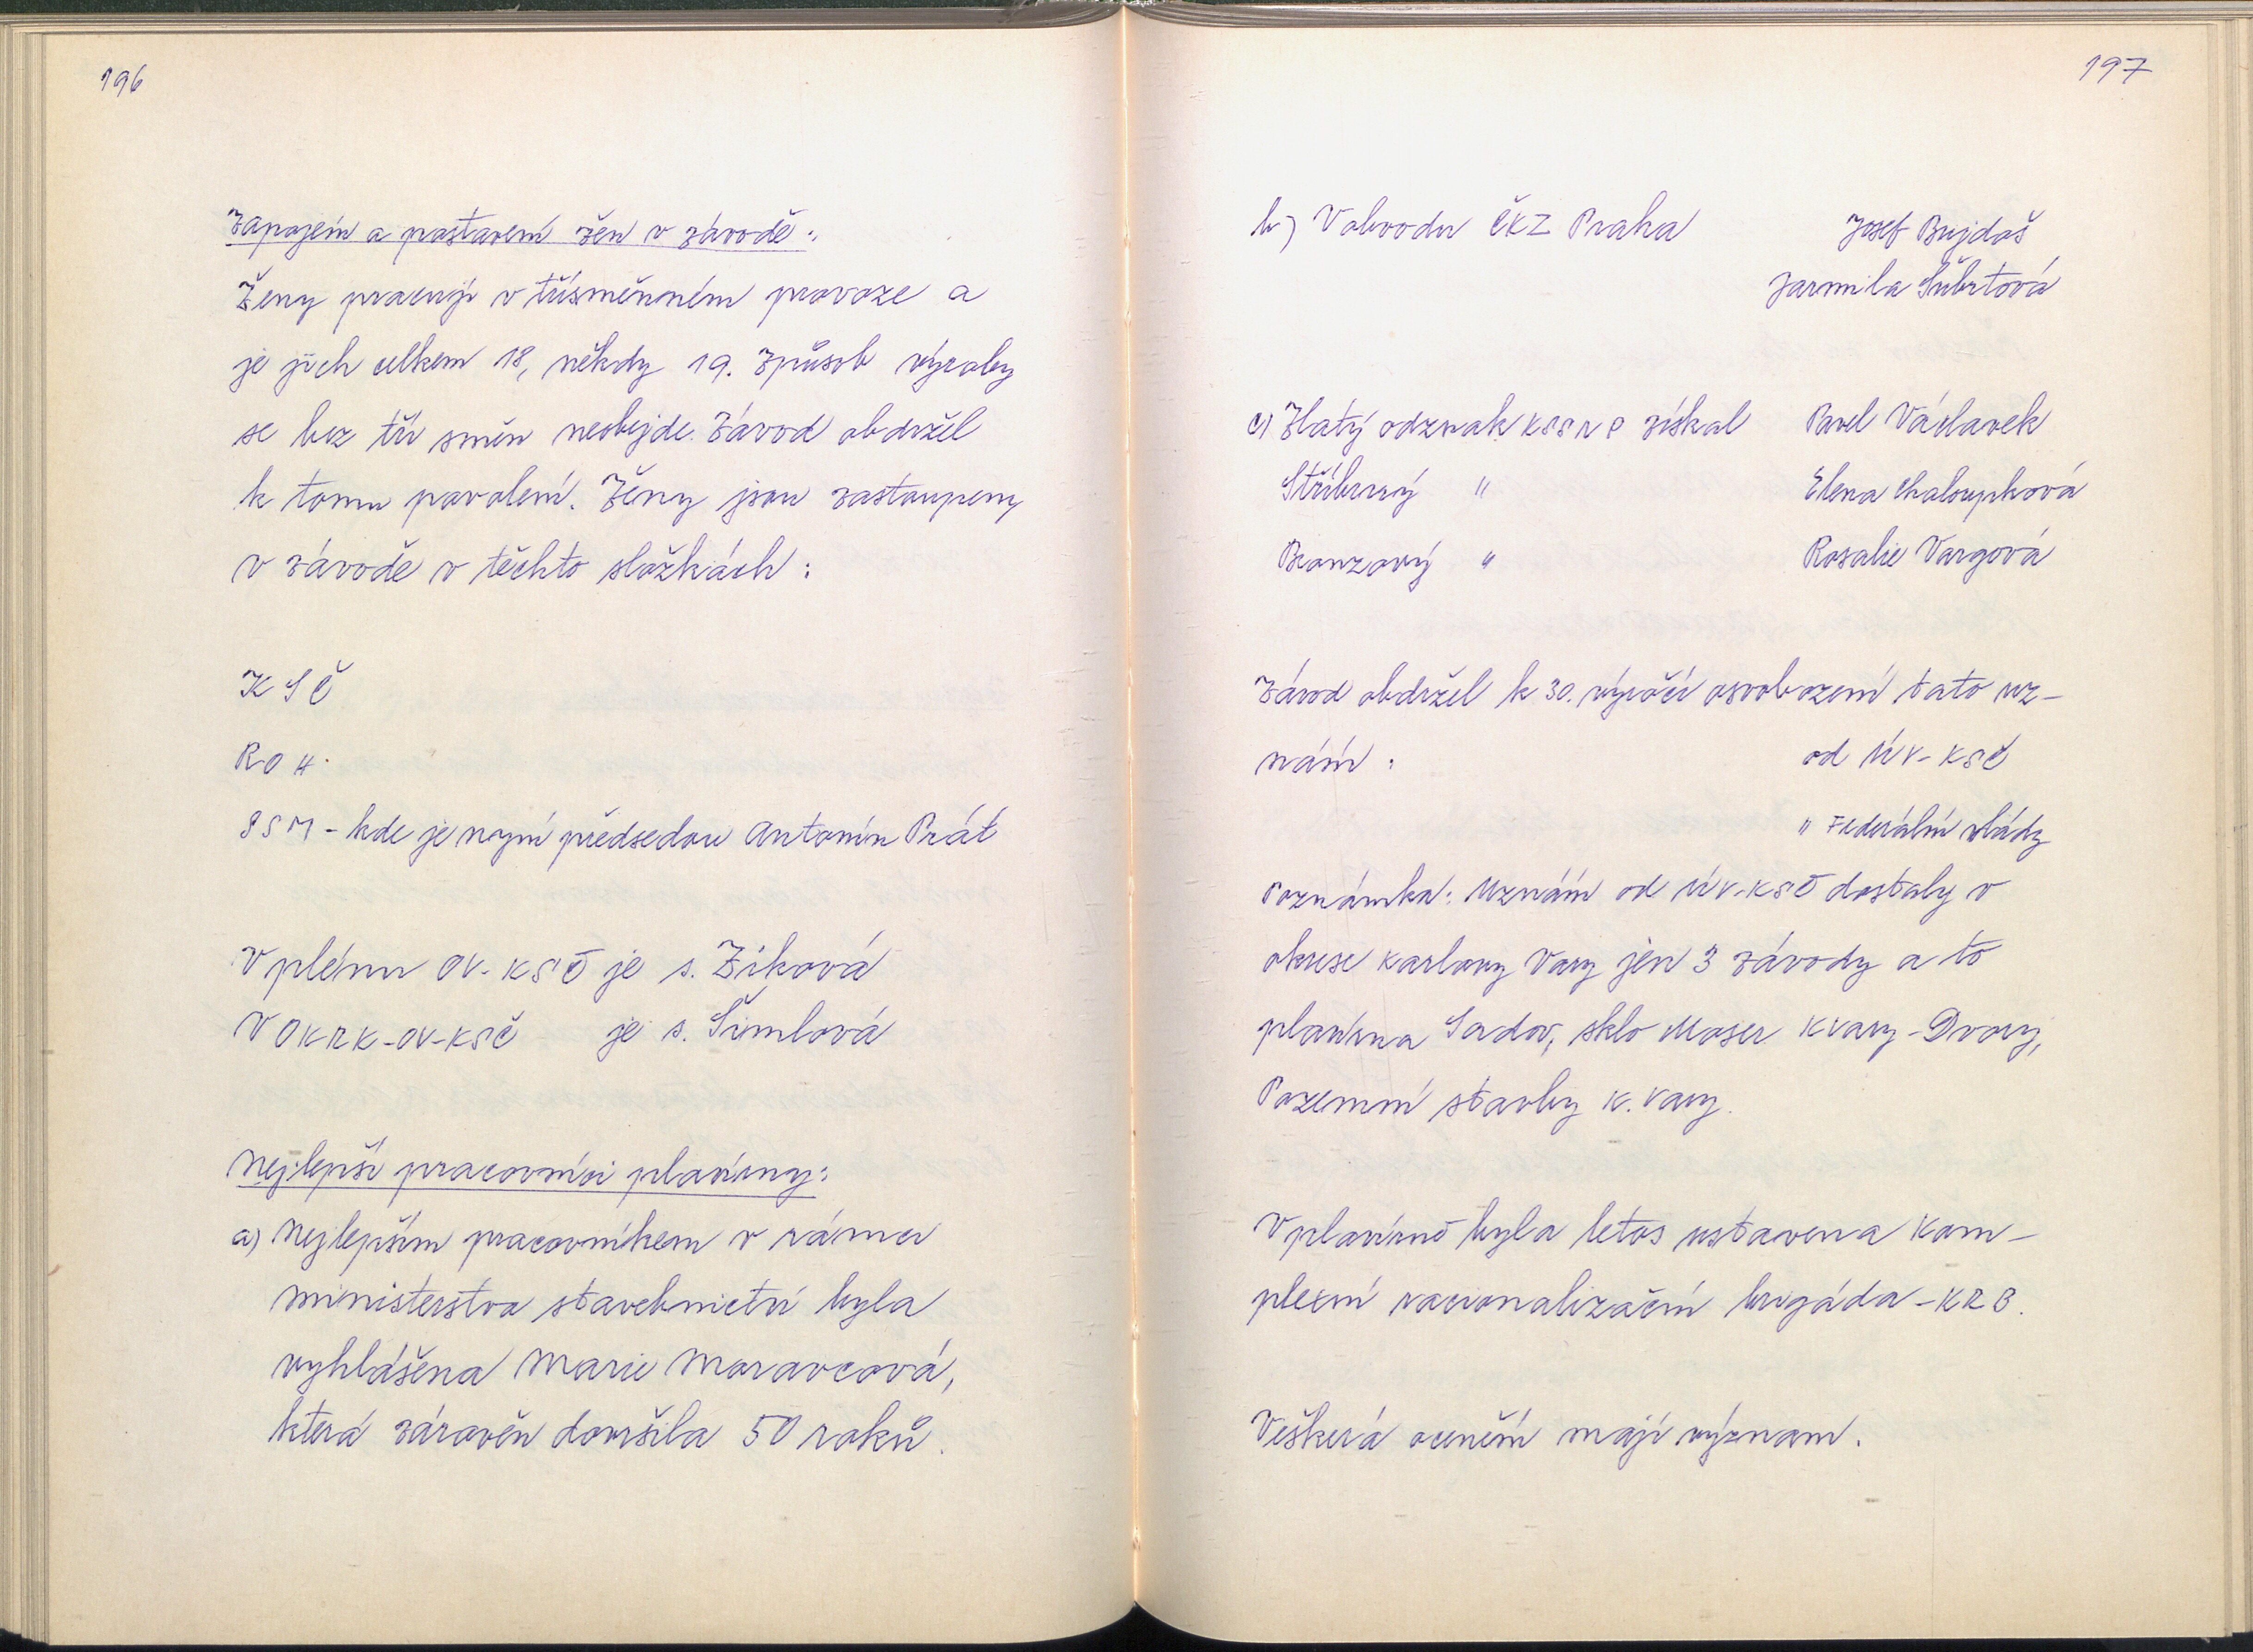 196
Zapojení a postavení žen v závodě:
Ženy pracují v třísměnném provoze a
je jich celkem 18, někdy 19. Způsob výroby
se bez tří směn neobejde. Závod obdržel
k tomu povolení. Ženy jsou zastoupeny
v závodě v těchto složkách:
KSČ
ROH.
SSM - kde je nyní předsedou Antonín Prát
V plénu OV-KSČ je s. Ziková
V OKRK-OV-KSČ je s. Šimlová
Nejlepší pracovníci plavírny:
a) Nejlepším pracovníkem v rámci
ministerstva stavebnictví byla
vyhlášena Marie Moravcová,
která zároveň dovršila 50 roků.
197
b) V obvodu ČKZ Praha Josef Bujdoš
Jarmila Šubrtová
c) Zlatý odznak KSSRP získal Pavel Václavek
Stříbrný " Elena Chaloupková
Bronzový " Rosalie Vargová
Závod obdržel k 30. výročí osvobození tato uz-
nání: od ÚV-KSČ
" Federální vlády
Poznámka: Uznání od ÚV-KSČ dostaly v
okrese Karlovy Vary jen 3 závody a to
plavírna Sadov, sklo Moser K Vary-Dvory,
Pozemní stavby K. Vary.
V plavírně byla letos ustavena Kom-
plexní racionalizační brigáda - KRB.
Veškerá ocenění mají význam.